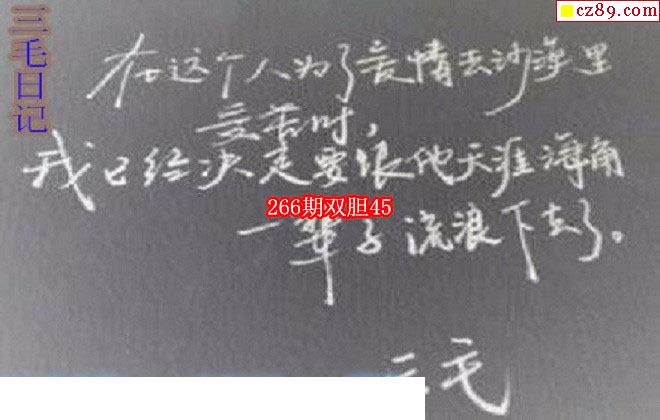 三毛日记
cz89.com
在这个人为了爱情去沙漠里
受苦时,
我已经决定要跟他天涯海角
266期双胆45
一辈子流浪下去了。
三毛